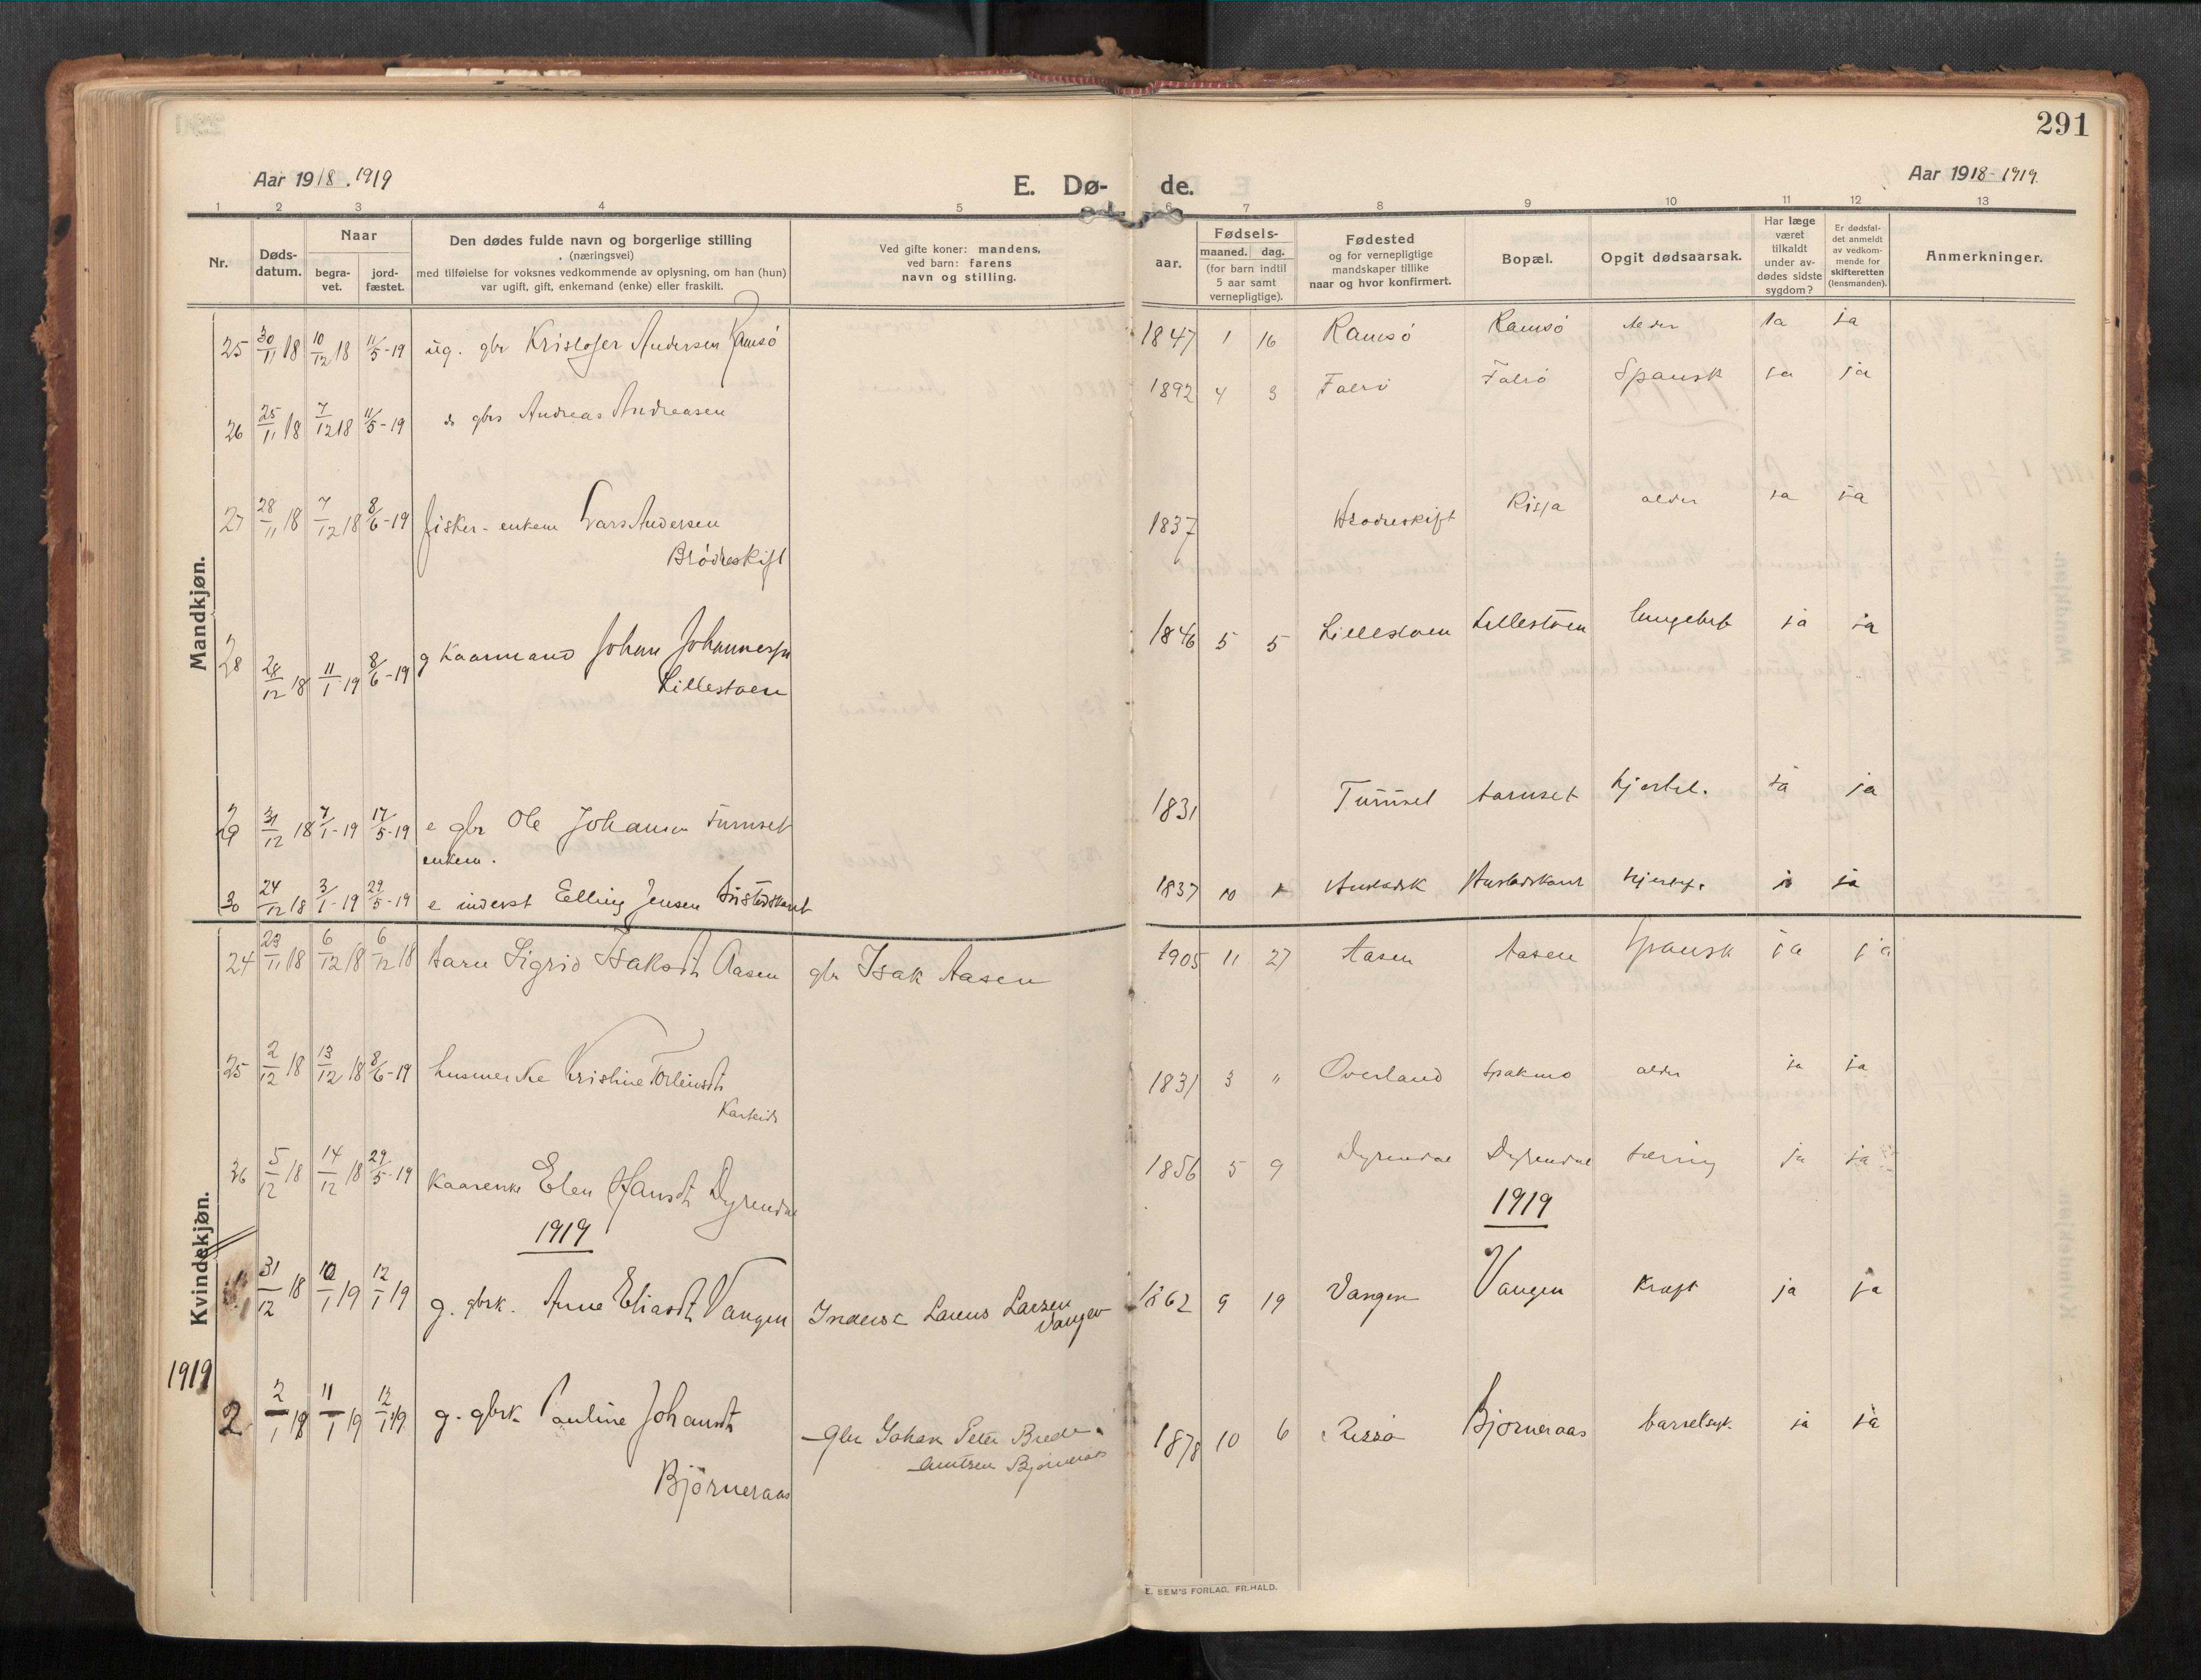 291
Aar 1918. 1919
E. Dø- de.
Aar 1918-1919.
1 2 3 4 5 6 7 8 9 10 11 12 13
Nr.
Døds-
datum.
Naar
begra-
vet.
jord-
fæstet.
Den dødes fulde navn og borgerlige stilling
(næringsvei)
med tilføielse for voksnes vedkommende av oplysning, om han (hun)
var ugift, gift, enkemand (enke) eller fraskilt.
Ved gifte koner: mandens,
ved barn: farens
navn og stilling.
Fødsels-
aar.
maaned. dag.
(for barn indtil
5 aar samt
vernepligtige).
Fødested
og for vernepligtige
mandskaper tillike
naar og hvor konfirmert.
Bopæl.
Opgit dødsaarsak.
Har læge
været
tilkaldt
under av-
dødes sidste
sygdom?
Er dødsfal-
det anmeldt
av vedkom-
mende for
skifteretten
(lensmanden).
Anmerkninger.
Mandkjøn.
25 30/11 18 10/12 18 11/5-19 ug. gbr Kristofer Andersen Ramsö 1847 1 16 Ramsö Ramsö ja ja
26 25/11 18 7/12 18 11/5-19 do gbrs Andreas Andreasen 1892 4 3 Spansk ja ja
27 28/11 18 7/12 18 8/6-19 fisker - enkem Lars Andersen 1837 Brodreskift alder ja ja
Brödreskift
28 28/12 18 11/1-19 8/6-19 g Kaarmand Johan Johannessen 1846 5 5 Lillestoen Lillestoen lungebet ja ja
Lillestoen
29 31/12 18 7/1-19 17/5-19 e gbr Ole Johansen 1831 ja ja
enkem.
30 24/12 18 3/1-19 29/5-19 e inderst Elling Jensen 1837 10 ja ja
Kvindekjøn.
24 23/11 18 6/12 18 6/12 18 barn Sigrid Isaksdt Aasen gbr Isak Aasen 1905 11 27 Aasen Aasen Spansk ja ja
25 2/12 18 13/12 18 8/6-19 Kristine Torleinsdt 1831 3 " Overland alder ja ja
36 5/12 18 14/12 18 29/5-19 Kaarenke Elen Hansdt Dyrendal 1856 5 9 Dyrendal Dyrendal tæring ja ja
1919 1919
1 31/12 18 10/1 19 12/1 19 g. gbrk. Anne Eliasdt Vangen Inderst Larsen 1862 9 19 Vangen Vangen Kræft ja ja
Vangen
1919
2 2/1 19 11/1 19 12/1 19 g. gbrk Pauline Johansdt Gbr Johan Peter 1878 10 6 Rissa Bjorneraas barselsyk. ja ja
Björneraas
E. SEM'S FORLAG, FR.HALD.